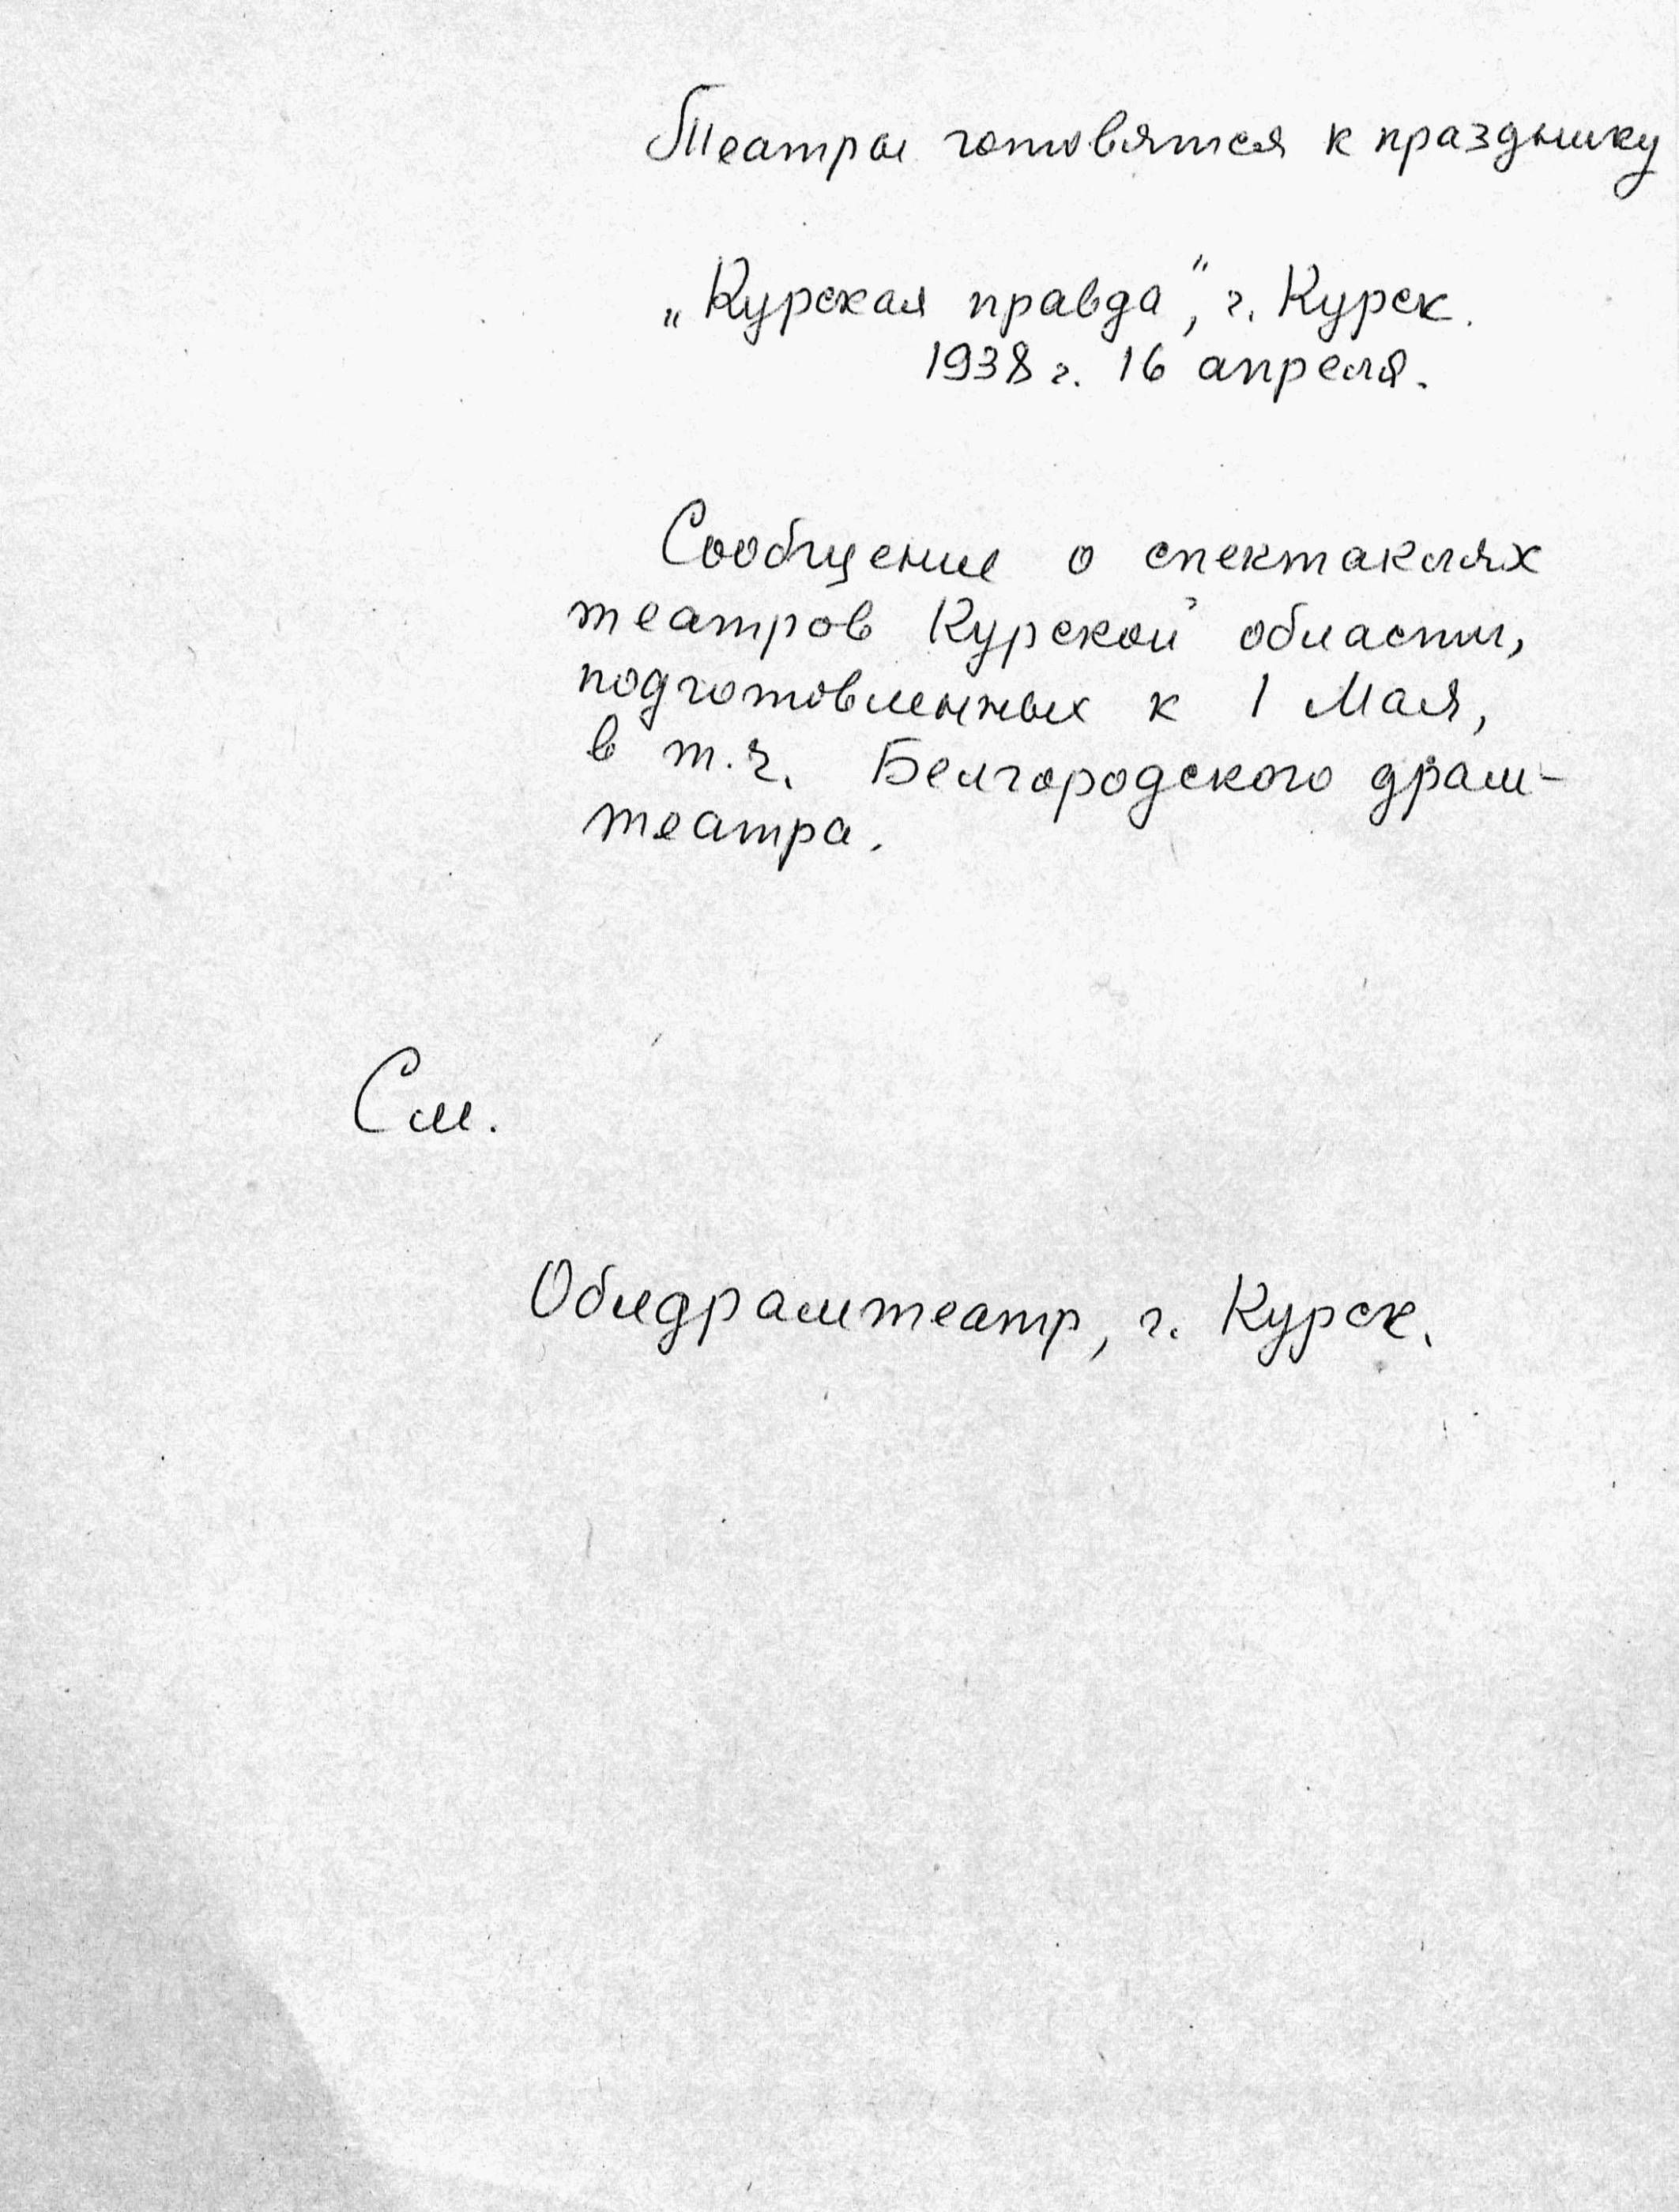 Театры готовятся к празднику
„Курская правда", г. Курск.
1938 г. 16 апреля.
Сообщение о спектаклях
театров Курской области,
подготовленных к 1 Мая,
в т.ч. Белгородского драм-
театра.
См.
Облдрамтеатр, г. Курск.